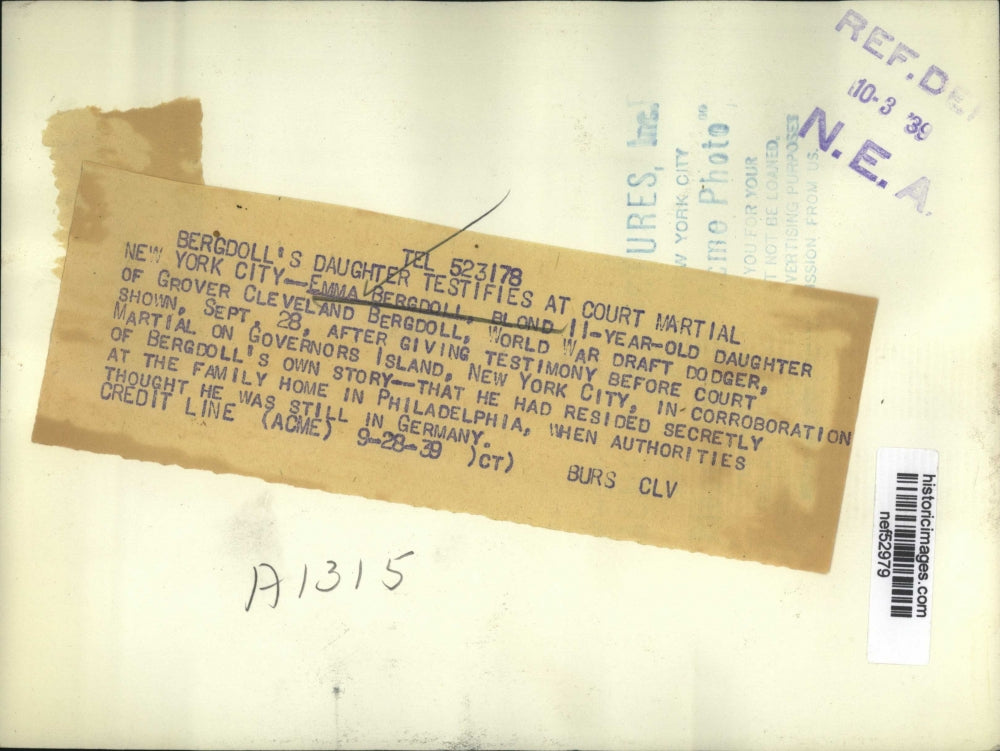 REF. DE
10-3 '39
N. E. A.
URES, Inc.
W YORK CITY
cme Photo"
YOU FOR YOUR
T NOT BE LOANED,
VERTISING PURPOSES
SSION FROM US.
TEL 523178
BERGDOLL'S DAUGHTER TESTIFIES AT COURT MARTIAL
NEW YORK CITY--EMMA BERGDOLL, BLOND 11-YEAR-OLD DAUGHTER
OF GROVER CLEVELAND BERGDOLL, WORLD WAR DRAFT DODGER,
SHOWN, SEPT. 28, AFTER GIVING TESTIMONY BEFORE COURT
MARTIAL ON GOVERNORS ISLAND, NEW YORK CITY, IN CORROBORATION
OF BERGDOLL'S OWN STORY--THAT HE HAD RESIDED SECRETLY
AT THE FAMILY HOME IN PHILADELPHIA, WHEN AUTHORITIES
THOUGHT HE WAS STILL IN GERMANY.
CREDIT LINE (ACME) 9-28-39 )CT)
BURS CLV
A1315
historicimages.com
nef52979